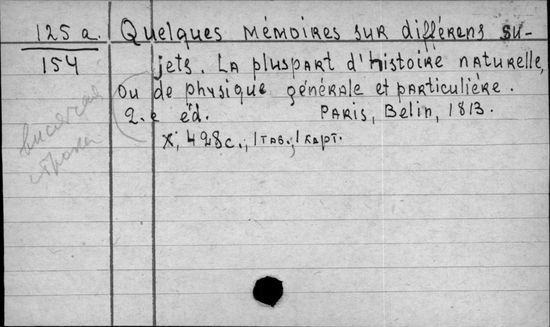 125 a.
154
Quelques mémoires sur différens su-
jets. La pluspart d'histoire naturelle,
ou de physique générale et particulière.
2.e éd. Paris, Belin, 1813.
X, 428 с., 1 таб., 1 карт.
висячая
строка